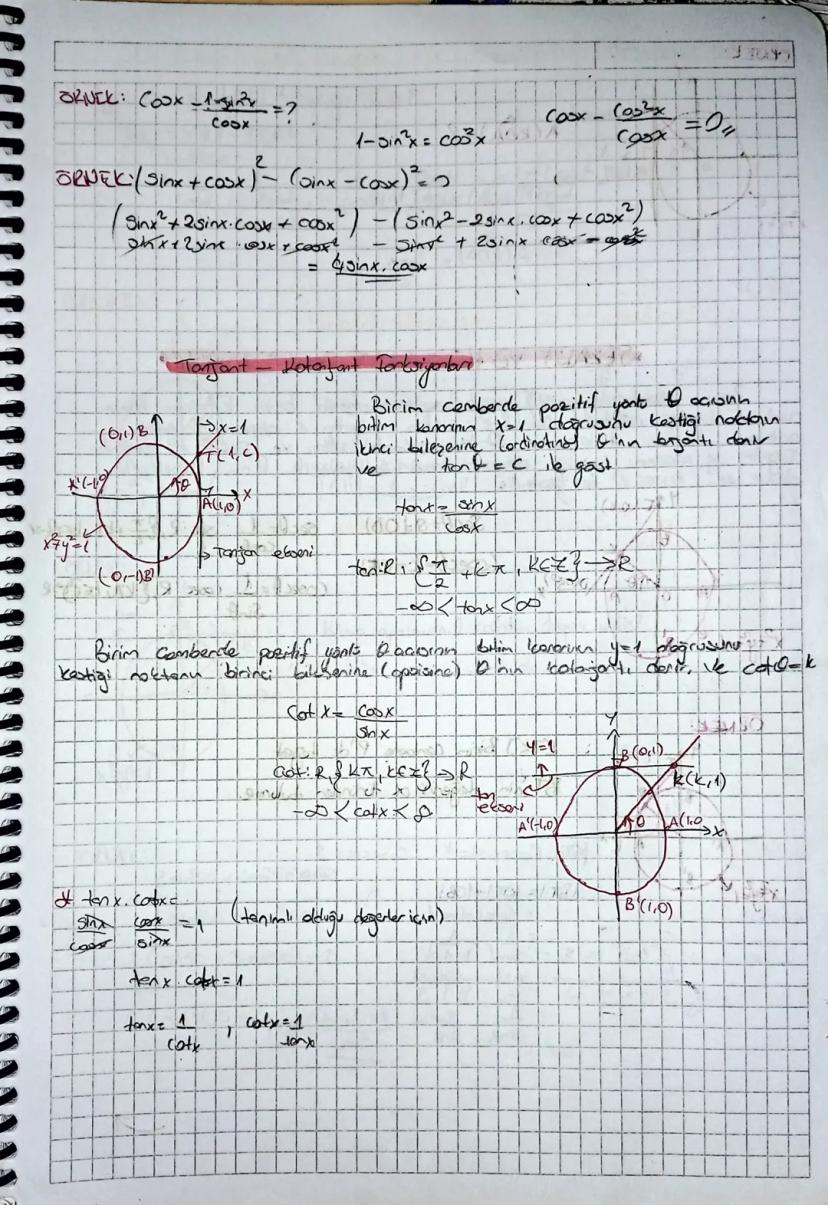 ÖRNEK: Cosx - (1-sin²x)/cosx = ?
1-sin²x = cos²x
cosx - (cos²x)/(cosx) = 0,,
ÖRNEK: (sinx + cosx)² - (sinx - cosx)² = ?
(sinx² + 2sinx.cosx + cosx²) - (sinx² - 2sinx.cosx + cosx²)
sinx² + 2sinx cosx + cosx² - sinx² + 2sinx cosx - cosx²
= 4sinx.cosx
Tanjant - Kotanjant Fonksiyonları
Birim çemberde pozitif yönlü θ açısının
bitim kenarının x=1 doğrusunu kestiği noktanın
ikinci bileşenine (ordinatına) θ'nın tanjantı denir
ve tanθ = c ile göst
→ x=1
(0,1) B
T(1,c)
A'(-1,0)
θ
x
A(1,0)
x²+y²=1
→ Tanjan ekseni
(0,-1)B'
tanx = sinx/cosx
tan: R \ {π/2 + kπ, k∈Z} → R
-∞ < tanx < ∞
Birim çemberde pozitif yönlü θ açısının bitim kenarının y=1 doğrusunu
kestiği noktanın birinci bileşenine (apsisine) θ'nın kotanjantı denir. ve cotθ=k
Cot x = cosx/sinx
cot: R \ {kπ, k∈Z} → R
-∞ < cotx < ∞
Y
y=1
B(0,1)
K(k,1)
ekseni
A'(-1,0)
θ
A(1,0
x
B'(1,0)
* tanx.cotx=
sinx/cosx cosx/sinx = 1 (tanımlı olduğu değerler için)
tanx.cotx = 1
tanx = 1/cotx , cotx = 1/tanx